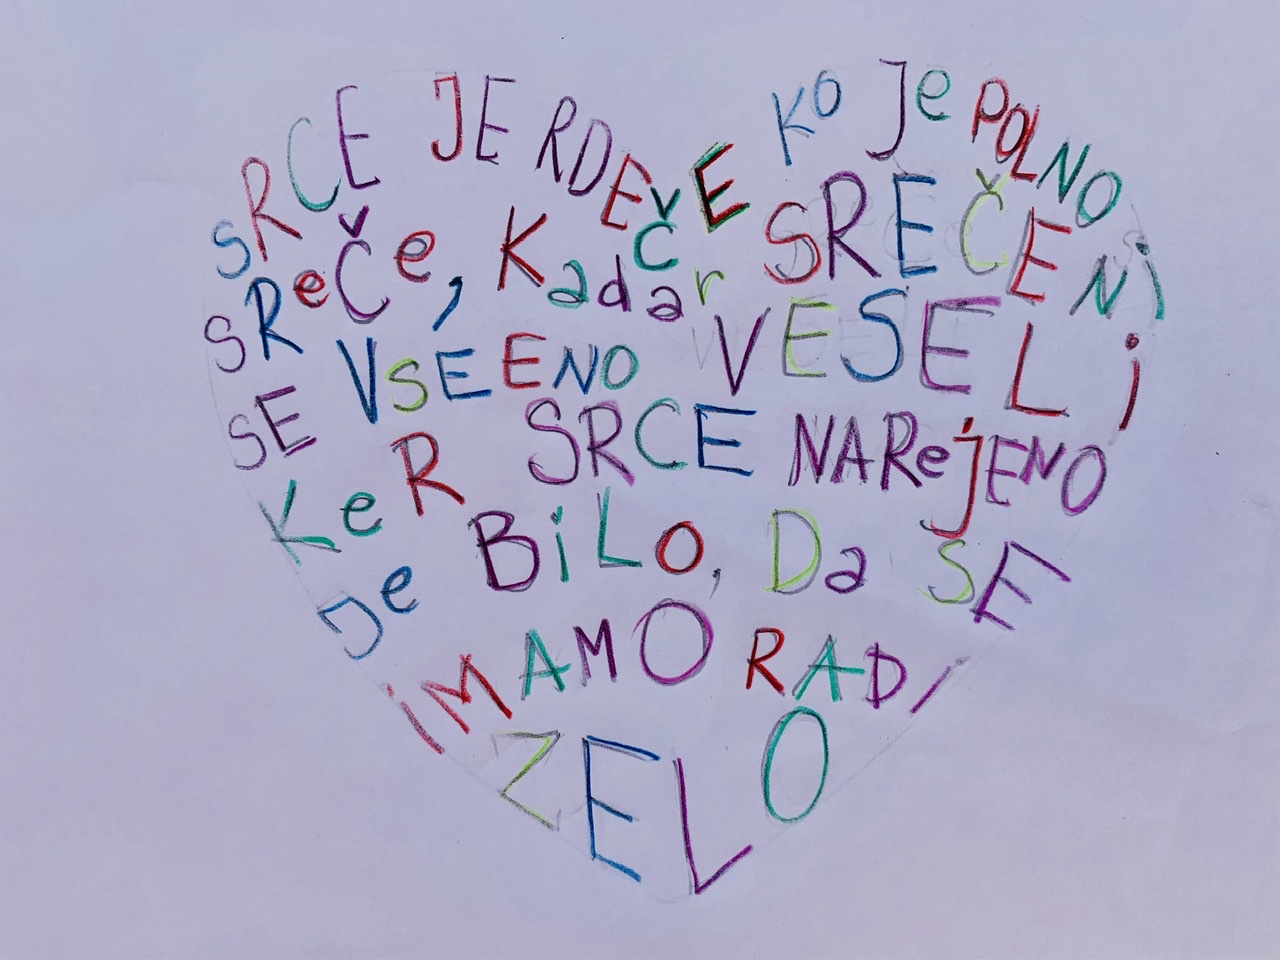 SRCE JE RDEČE KO Je POLNO
SReČe, Kadar SREČENi
SE VSEENO VESELi
KeR SRCE NARejENO
Je BiLo, Da SE
iMAMO RADI
ZELO